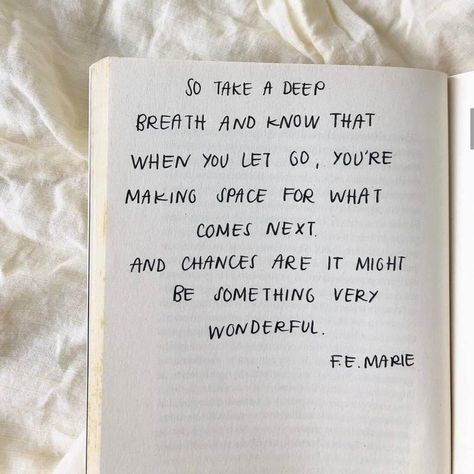 SO TAKE A DEEP
BREATH AND KNOW THAT
WHEN YOU LET GO, YOU'RE
MAKING SPACE FOR WHAT
COMES NEXT.
AND CHANCES ARE IT MIGHT
BE SOMETHING VERY
WONDERFUL.
F.E. MARIE